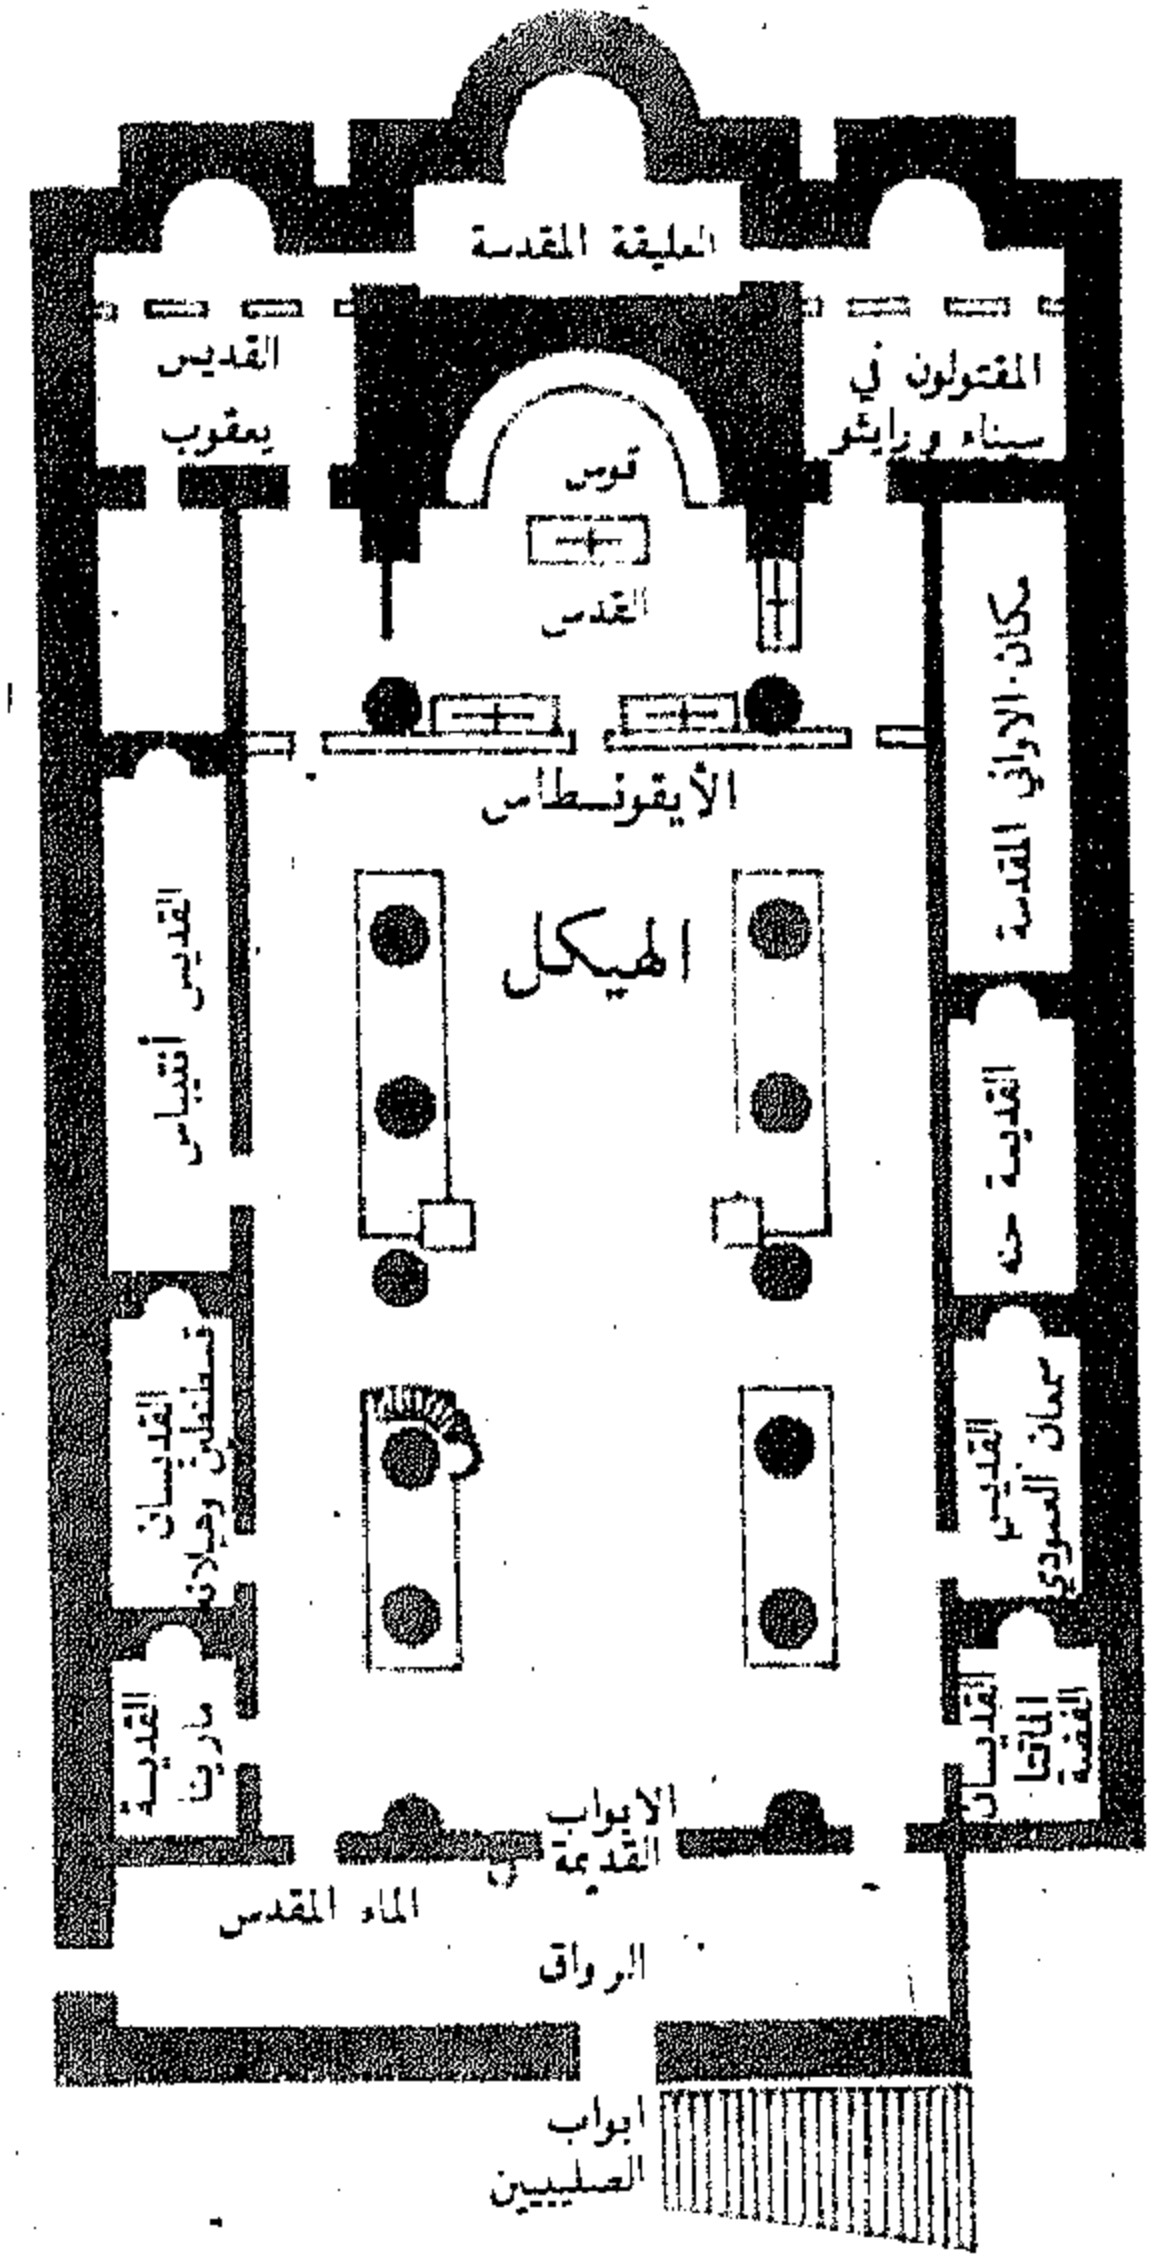 العليقة المقدسة
القديس
يعقوب
المقتولون في
سيناء ورايثو
قوس
القدس
مكان الاواني المقدسة
الأيقونسطاس
الهيكل
القديس أنتيباس
القديسة حنه
القديسان
قسطنطين وهيلانه
القديس
سمعان العمودي
القديسة
مارينا
القديسان
الفضة
الابواب
القديمة
الماء المقدس
الرواق
ابواب
الصليبيين